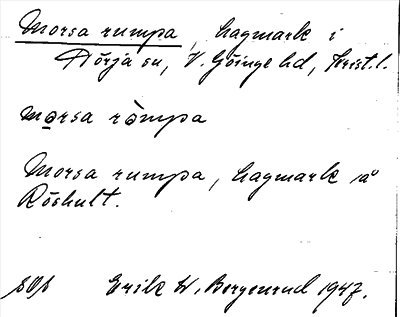 Morsa rumpa, hagmark i
Nörja sn, V. Göinge hd, Krist. l.
mo̲rsa ròmpa
Morsa rumpa, hagmark på
Röshult.
Erik W. Borgenrud 1947.